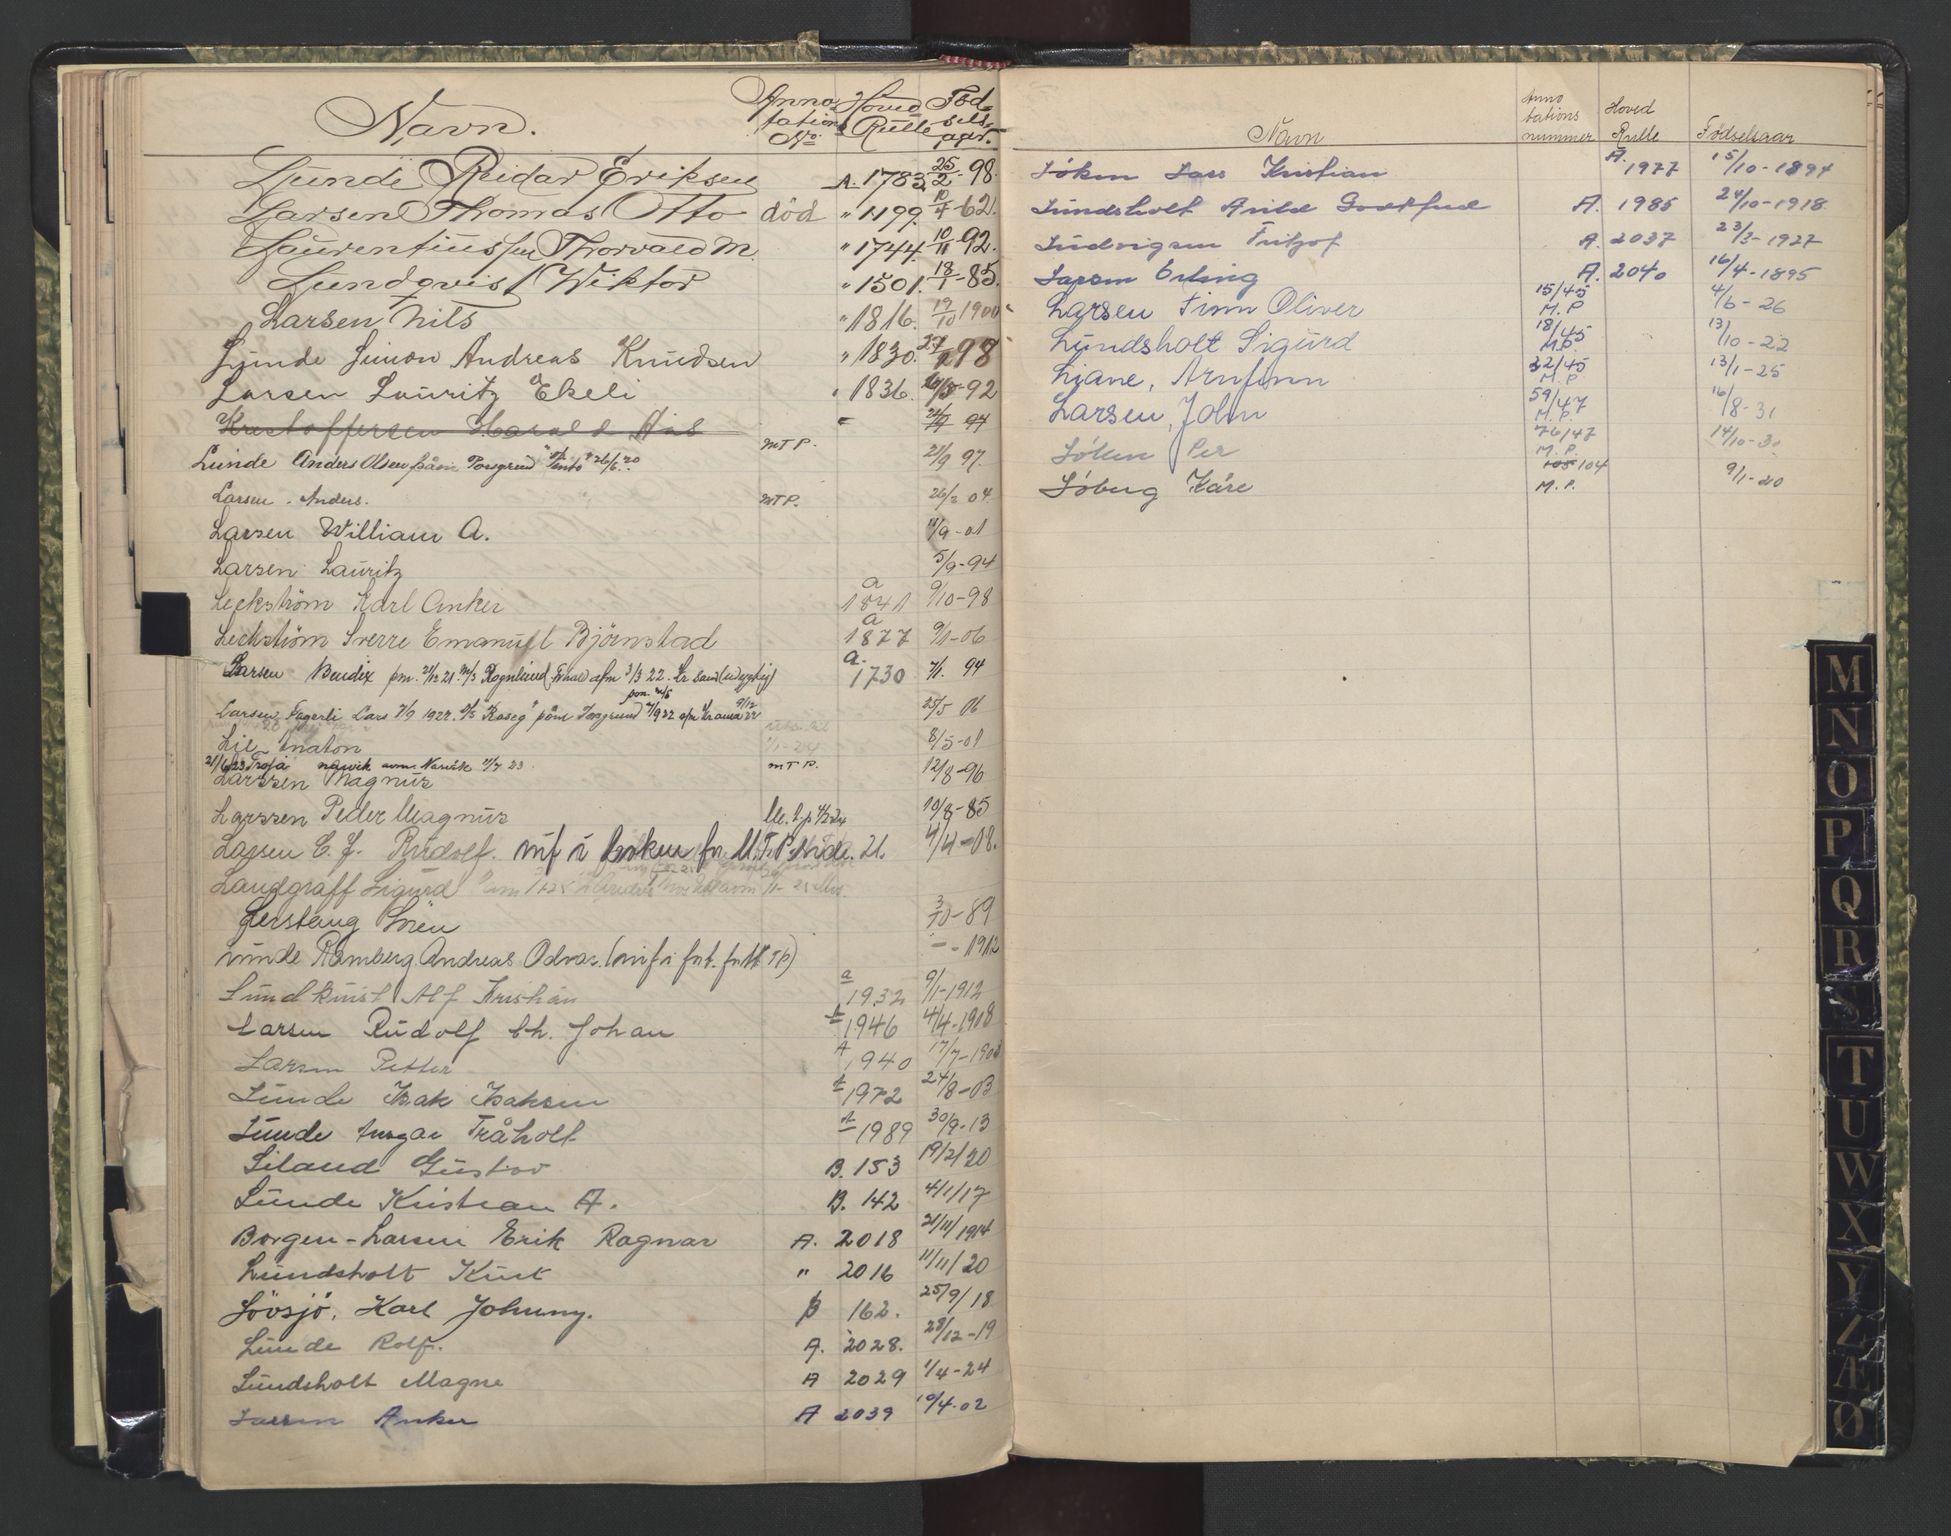 Navn. Anno- tations No. Hoved Rulle Fød- sels- aar.
Lunde Reidar Eriksen A. 1783 25/2 - 98.
Larsen Thomas Otto død " 1199. 10/4 - 62.
Laurentiussen Thorvald M. " 1744. 10/11 - 92.
Lundqvist Wiktor " 1501. 18/1 - 85.
Larsen Nils " 1816. 19/10 1900
Lunde Simon Andreas Knudsen " 1830. 27/2 98
Larsen Lauritz Ekeli " 1836. - 92
Kristoffersen Harald - 94
Lunde Anders Olsen Porsgrund 26/6.20 M T P. 21/9 97.
Larsen. Anders. M T P. 26/2 04.
Larsen William A. 11/9 - 01
Larsen Lauritz 5/9 - 94
Leckström Karl Anker a 1841 9/10 - 98
Leckström Sverre Emanuel Björnstad a 1877 9/1 - 06
Larsen Bendix pm. 21/12 21. M/S Rognlund 3/3 22. a. 1730 7/1. 94
Larsen Fagerli Lars 7/9 1922. "Kaseg" påm Porsgrund 25/5 06
Lie Anaton 8/5 - 01
21/6 23 Troja Narvik 11/7 23 M T P.
Larssen Magnus 12/8 - 96
Larssen Peder Magnus 10/8 - 85
Larsen C. J. Rudolf. inf i boken for M.T.P. side. 21. 4/4 - 08.
Landgraff Sigurd
Lerstang Sören 3/10 - 89
Lunde Ramberg Andreas Odvar. - - 1912
Lundkvist Alf Kristian a 1932 9/1 - 1912
Larsen Rudolf Ch. Johan A 1946 4/4 - 1908
Larsen Petter A 1940 17/7 - 1903
Lunde Isak Isaksen A 1972 24/8 - 03
Lunde Ansgar Tråholt A 1989 30/9 - 13
Liland Gustav B. 153 19/2/20
Lunde Kristian A. B. 142 4/1/17
Borgen-Larsen Erik Ragnar A. 2018 21/11/1914
Lundsholt Kurt " 2016 11/11/20
Lövsjö, Karl Johnny. B 162. 25/9/18
Lunde Rolf. A. 2028. 28/12 - 19
Lundsholt Magne A 2029 1/4 - 24
Larsen Anker A 2039 10/4 - 02
Navn Anno tations nummer Hoved Rulle Fødselsaar
Løken Lars Kristian A. 1977 15/10 - 1894
Lundsholt Arild Godtfred A. 1985 24/10 - 1918
Ludvigsen Fritjof A. 2037 23/3 - 1927
Larsen Erling A. 2040 16/4 - 1895
Larsen Finn Oliver 15/45 M. P 4/6 - 26
Lundsholt Sigurd 18/45 M.P. 13/10 - 22
Liane, Arnfinn 32/45 M. P 13/1 - 25
Larsen, John 59/47 M. P. 16/8 - 31
Løken Per 76/47 M. P. 14/10 - 30
Løberg Kåre 105 104 M. P. 9/1 - 20
M
N
O
P
Q
R
S
T
U
W
X
Y
Z
Æ
Ø